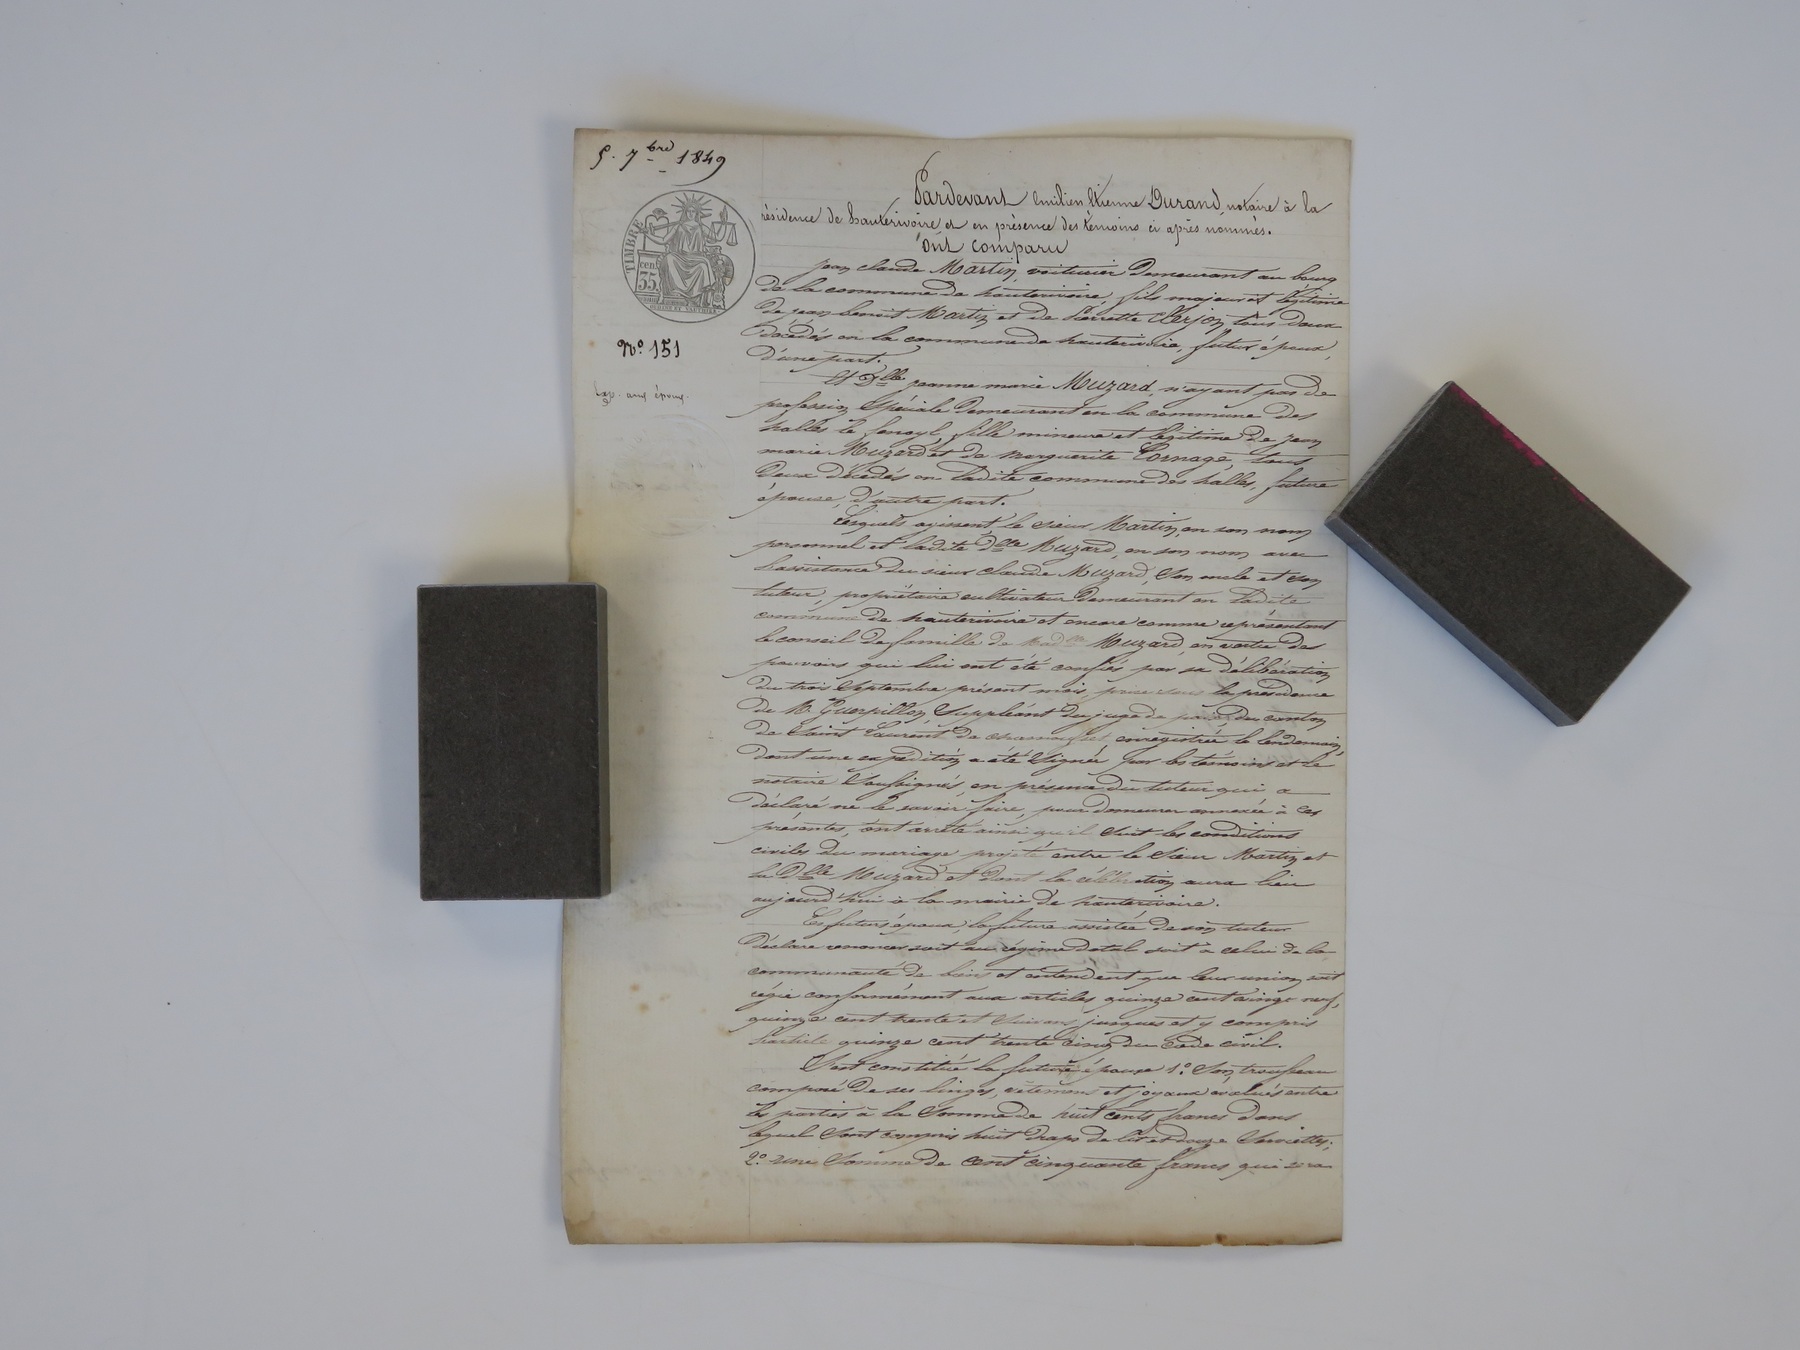 5. 7bre 1849
TIMBRE
cen.
35.
N.o 151
Exp. aux époux.
Pardevant Emilien Etienne Durand, notaire à la
résidence de hauterivoire, et en présence des témoins ci après nommés.
Ont comparu
Jean Claude Martin, voiturier demeurant au bourg
de la commune de hauterivoire, fils majeur et légitime
de Jean Benoit Martin et de Pierrette Clerjon, tous deux
décédés en la commune de hauterivoire, futur époux,
d'une part.
Et Dlle Jeanne marie Muzard, n'ayant pas de
profession spéciale demeurant en la commune des
halles le fenoyl, fille mineure et légitime de Jean
marie Muzard et de Marguerite Cornage, tous
deux décédés en ladite commune des halles, future
épouse, d'autre part.
Lesquels agissent, le sieur Martin, en son nom
personnel et ladite Dlle Muzard, en son nom avec
l'assistance du sieur Claude Muzard, son oncle et son
tuteur, propriétaire cultivateur demeurant en ladite
commune de hauterivoire et encore comme représentant
le conseil de famille de lad. Dlle Muzard, en vertu des
pouvoirs qui lui ont été confiés par sa délibération
du trois Septembre présent mois, prise sous la présidence
de M. Guerpillon, Suppléant du juge de paix du canton
de Saint Laurent de chamousset, enregistrée le lendemain,
dont une expédition a été signée par les témoins et le
notaire Soussignés, en présence du tuteur qui a
déclaré ne le savoir faire, pour demeurer annexée à ces
présentes, ont arrêté ainsi qu'il Suit les conditions
civiles du mariage projeté entre le Sieur Martin et
la Dlle Muzard et dont la célébration aura lieu
aujourd'hui à la mairie de hauterivoire.
Les futurs époux, la future assistée de son tuteur
déclare renoncer soit au régime dotal soit à celui de la
communauté de biens et entendent que leur union soit
régie conformément aux articles quinze cent vingt neuf,
quinze cent trente et suivans jusques et y compris
l'article quinze cent trente cinq du code civil.
S'est constitué la future épouse 1.o Son trousseau
composé de ses linges, vêtemens et joyaux évalués entre
les parties à la Somme de huit cents francs dans
lequel Sont compris huit draps de lit et douze Serviettes;
2.o une Somme de cent cinquante francs qui sera